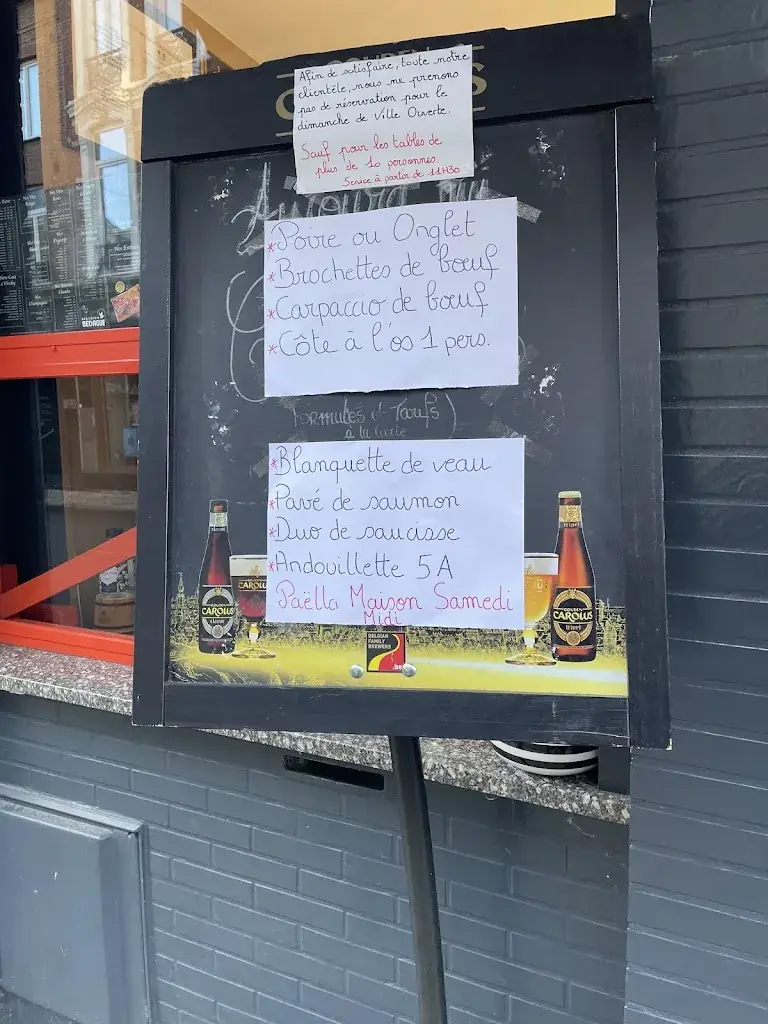 Afin de satisfaire, toute notre
clientèle, nous ne prenons
pas de réservation pour le
dimanche de Ville Ouverte.
Sauf pour les tables de
plus de 10 personnes.
Service à partir de 11H30
*Poire ou Onglet
*Brochettes de bœuf
*Carpaccio de bœuf
*Côte à l'os 1 pers.
FORMULES & Tarifs)
à la carte
*Blanquette de veau
*Pavé de saumon
*Duo de saucisse
*Andouillette 5A
Paëlla Maison Samedi
Midi
CAROLUS
classic
CAROLUS
GOUDEN
CAROLUS
tripel
BELGIAN
FAMILY
BREWERS
.be
BEDAGUE